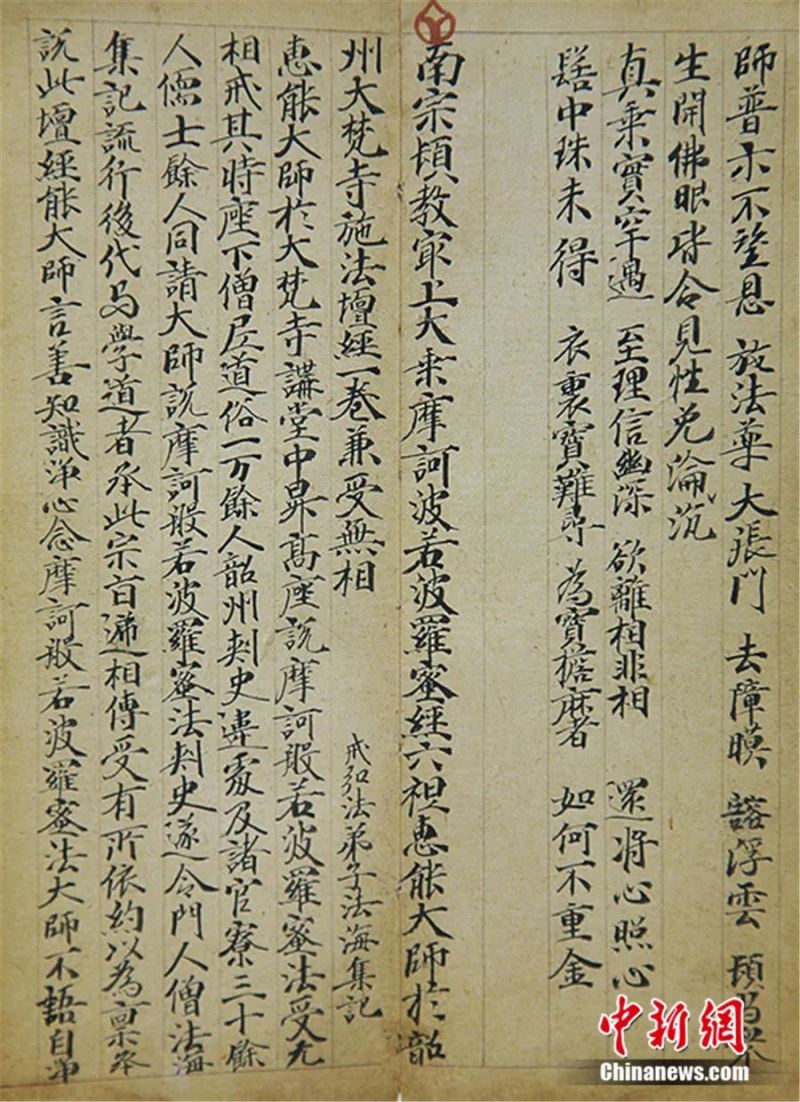 師普示不望息 放法藥大張門 去障暎 豁浮雲 頓為眾
生開佛眼皆令見性免淪沉
真乗實罕遇 至理信幽深 欲離相非相 還将心照心
髻中珠未得 衣裏寶難尋 為寶擔麻者 如何不重金
南宗頓教冣上大乗摩訶波若波羅蜜經六祖惠能大師於韶
州大梵寺施法壇經一巻兼受無相
戒弘法弟子法海集記
惠能大師於大梵寺講堂中昇髙座説摩訶般若波羅蜜法受无
相戒其時座下僧尼道俗一万餘人韶州刺史違處及諸官寮三十餘
人儒士餘人同請大師説摩訶般若波羅蜜法刺史遂令門人僧法海
集記流行後代与學道者承此宗旨逓相傳受有所依約以為稟承
説此壇經能大師言善知識浄心念摩訶般若波羅蜜法大師不語自浄
中新網
Chinanews.com